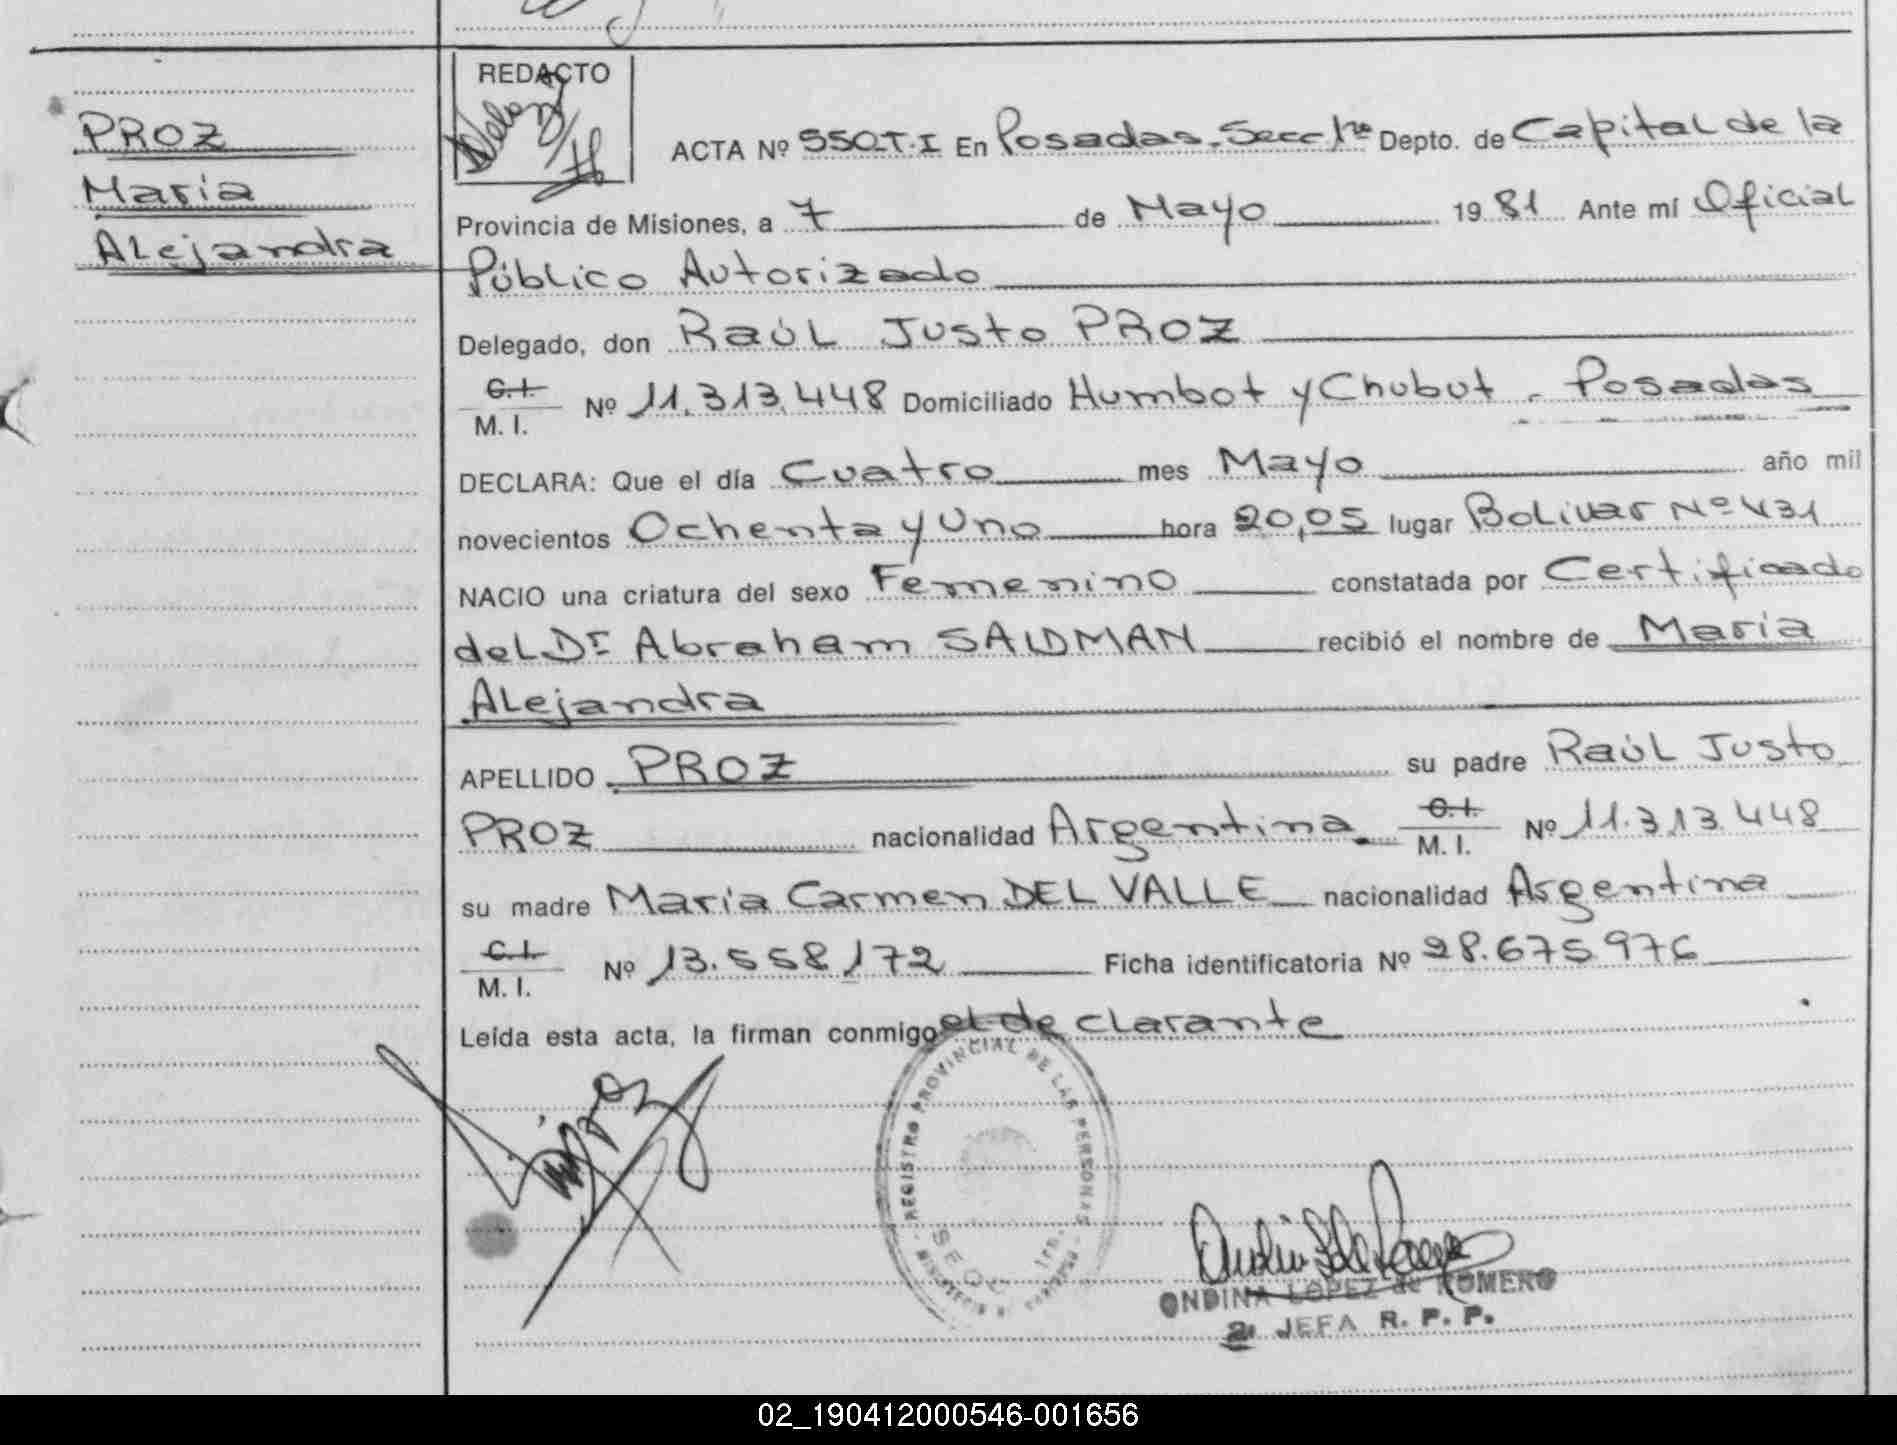 PROZ
Maria
Alejandra
REDACTO
ACTA Nº 550.T.I En Posadas. Secc 1ra Depto. de Capital de la
Provincia de Misiones, a 7 de Mayo 1981 Ante mí Oficial
Público Autorizado
Delegado, don Raúl Justo PROZ
C.I. M. I. Nº 11.313.448 Domiciliado Humbot y Chubut - Posadas
DECLARA: Que el día Cuatro mes Mayo año mil
novecientos Ochenta y Uno hora 20,05 lugar Bolivar Nº 431
NACIO una criatura del sexo Femenino constatada por Certificado
del Dr Abraham recibió el nombre de Maria
Alejandra
APELLIDO PROZ su padre Raúl Justo
PROZ nacionalidad Argentina C.I. M. I. Nº 11.313.448
su madre Maria Carmen DEL VALLE nacionalidad Argentina
C.I. M. I. Nº 13.558.172 Ficha identificatoria Nº 28.675.976
Leída esta acta, la firman conmigo el declarante
REGISTRO PROVINCIAL DE LAS PERSONAS
SECC 1ra.
ONDINA LOPEZ de ROMERO
2ª JEFA R. P. P.
02_190412000546-001656